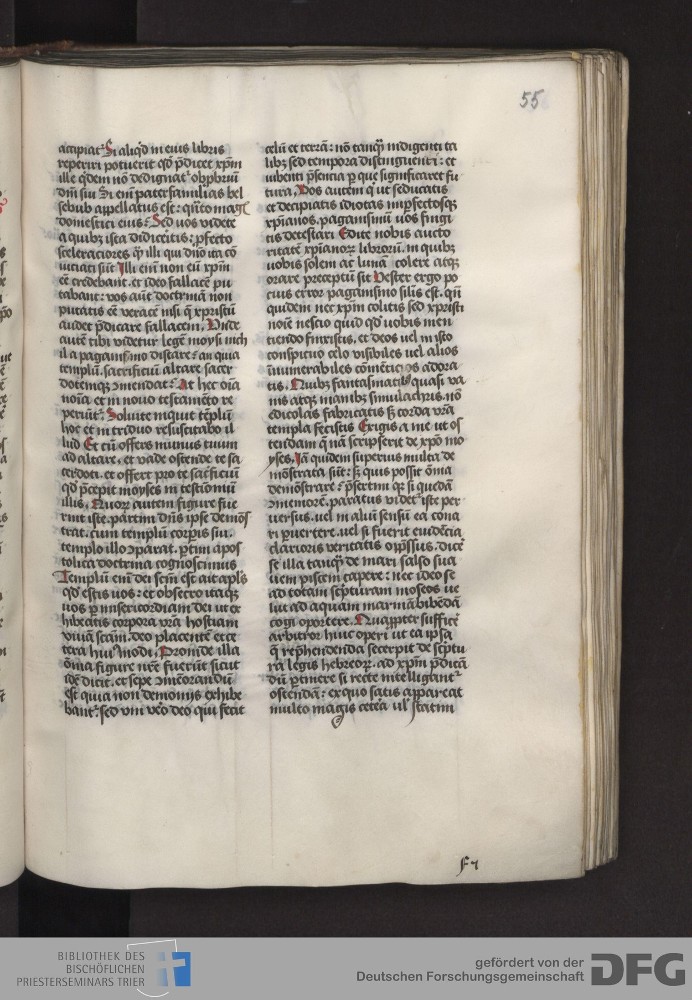 55
accipiat. Si aliqd in eius libris
reperiri potuerit qd p̄dicet xp̄m
ille qdem nō dedignat᷑ obprbriū
dn̄i sui Si em̄ paterfamilias bel
sebub appellatus est: qn̄to mag
domestici eius: Sed uos videte
a quibȝ ista didiceritis: ꝓfecto
sceleratiores qͣ illi qui dn̄o ita cō
uiciati sūt Illi em̄ non eū xp̄m
eē credebant. et ideo fallacē pu
tabant: vos aūt doctrinā non
putatis eē veracē nisi q̄ xpristū
audet p̄dicare fallacem, Unde
autē tibi videtur legē moysi nich
il a paganismo distare: an quia
templū. sacrificiū altare sacer
dotemqȝ ꝯmendat: At hec oīa
noīa et in nouo testamēto re
periūt᷑: Soluite inquit tēplū
hoc et in triduo resuscitabo il
lud Et cū offers munus tuum
ad altare. et vade ostende te sa
cerdoti. et offert pro te sac̄ficiū
qd p̄cepit moyses in testiōniū
illis, Quoꝝ autem figure fue
rint iste. partim dn̄s ipse demōs
trat. cum templū corpꝰis sui.
templo illo ꝯparat. ꝑtim apos
tolica doctrina cognoscimus
Templū em̄ dei scm̄ est ait apl̄s
qd estis uos: et obsecro itaqȝ
uos ꝑ misericordiam dei ut ex
hibeatis corpora vr̄a hostiam
viuā scām. deo placentē et ce
tera huiꝰmodi, Proinde illa
ōmia figure nr̄e fuerūt sicut
idē dicit. et sepe ꝯmēorandū
est quia non demonijs exhibe
bant᷑: sed vni ve̊o deo qui fecit
celū et terrā: nō tanqͣ indigenti ta
libȝ sed tempora distinguenti: et
iubenti p̄sencia ꝑ que significaret fu
tura, Vos autem q̇ ut seducatis
et decipiatis idiotas impfectosqȝ
xp̄ianos. paganismū uos fingi
tis detestari Edite nobis aucto
ritatē xp̄ianoꝝ librorū. in quibȝ
uobis solem ac lunā colere atqȝ
orare preceptū sit Vester ergo po
cius error paganismo silis est. qn̄
quidem nec xp̄m colitis sed xpristi
noīe nescio quid qd uobis men
tiendo finxistis, et deos uel in isto
conspicuo celo visibiles uel alios
innumerabiles cōmēticios adora
tis. Quibȝ fantasmatibȝ quasi va
nis atqȝ inanibȝ simulachris. nō
edicolas fabricatis sȝ corda vr̄a
templa fecistis Exigis a me ut os
tendam q̄ nā scripserit de xp̄o mo
yses. Iā quidem superius multa de
mōstrata sūt: sȝ quis possit ōmia
demōstrare: p̄sertim qͣ si quedā
ꝯmemorē. paratus videt᷑ iste per
uersus. uel in aliū sensū ea cona
ri ꝓuertere. uel si fuerit euidēcia
clarioris veritatis opp̄ssus. dicē
se illa tanqͣ de mari salso sua
uem piscem capere: nec ideo se
ad totam sc̄pturam moseos ue
lut ad aquam marinā bibendā
cogi oportere. Quapptter sufficē
arbitror huic operi ut ea ipsa
q̄ rep̄hendenda excerpit de sc̄ptu
ra legis hebreoꝝ. ad xp̄m p̄dicā
dū ꝑtinere si recte intelligant᷑
ostendā: ex quo satis appareat
multo magis cetēa ul᷑ statim
f⁊
BIBLIOTHEK DES
BISCHÖFLICHEN
PRIESTERSEMINARS TRIER
gefördert von der
Deutschen Forschungsgemeinschaft
DFG